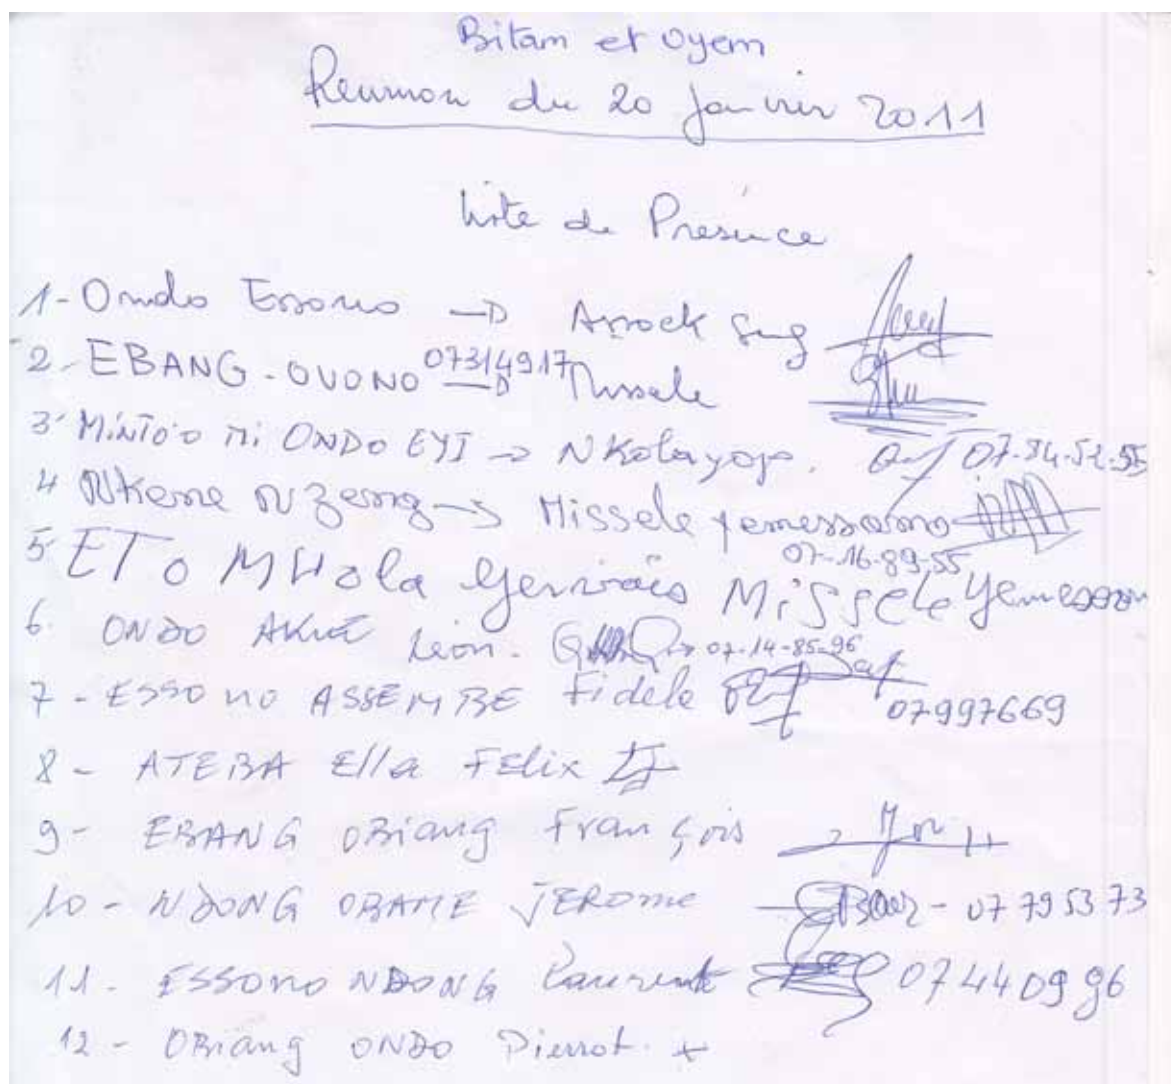 Bitam et Oyem
Réunion du 20 janvier 2011
Liste de Présence
1- Ondo Essono → Assock
2- EBANG-OVONO 07314917 → Missele
3- MiNTO'O Mi ONDO EYI → NKolayop. 07-84-52-55
4 Nkene NZeng → Missele yemessomo
5- ETO MHola Gervais 07-16-89-55 Missele Yemessom
6. ONDO AKUE Léon. 07-14-85-96
7 - ESSONO ASSEMBE Fidèle 07997669
8 - ATEBA Ella FElix
9- EBANG OBiang François
10 - NDONG OBAME JEROme - 07 79 53 73
11. ESSONO NDONG Laurent 07440996
12 - OBiang ONDO Pierrot. +